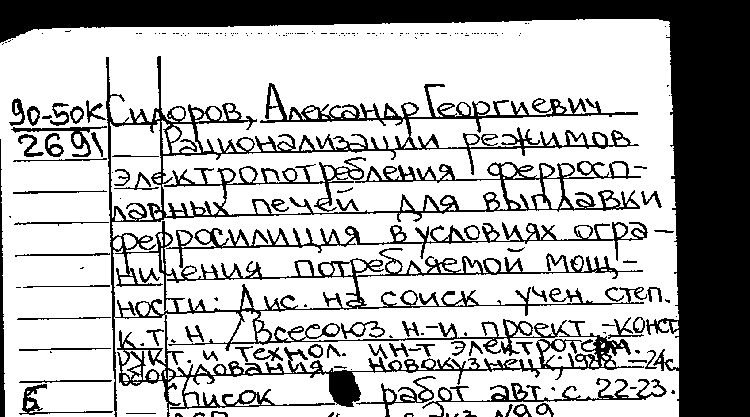 90-50К Сидоров, Александр Георгиевич
2691 Рационализации режимов
электропотребления ферросп-
лавных печей для выплавки
ферросилиция в условиях огра-
ничения потребляемой мощ-
ности: Дис. на соиск. учен. степ.
к.т.н. / Всесоюз. н.-и. проект.-конст
рукт. и технол. ин-т электротерм.
оборудования.- Новокузнецк, 1988 -24с.
Б Список работ авт.: с. 22-23.
№99